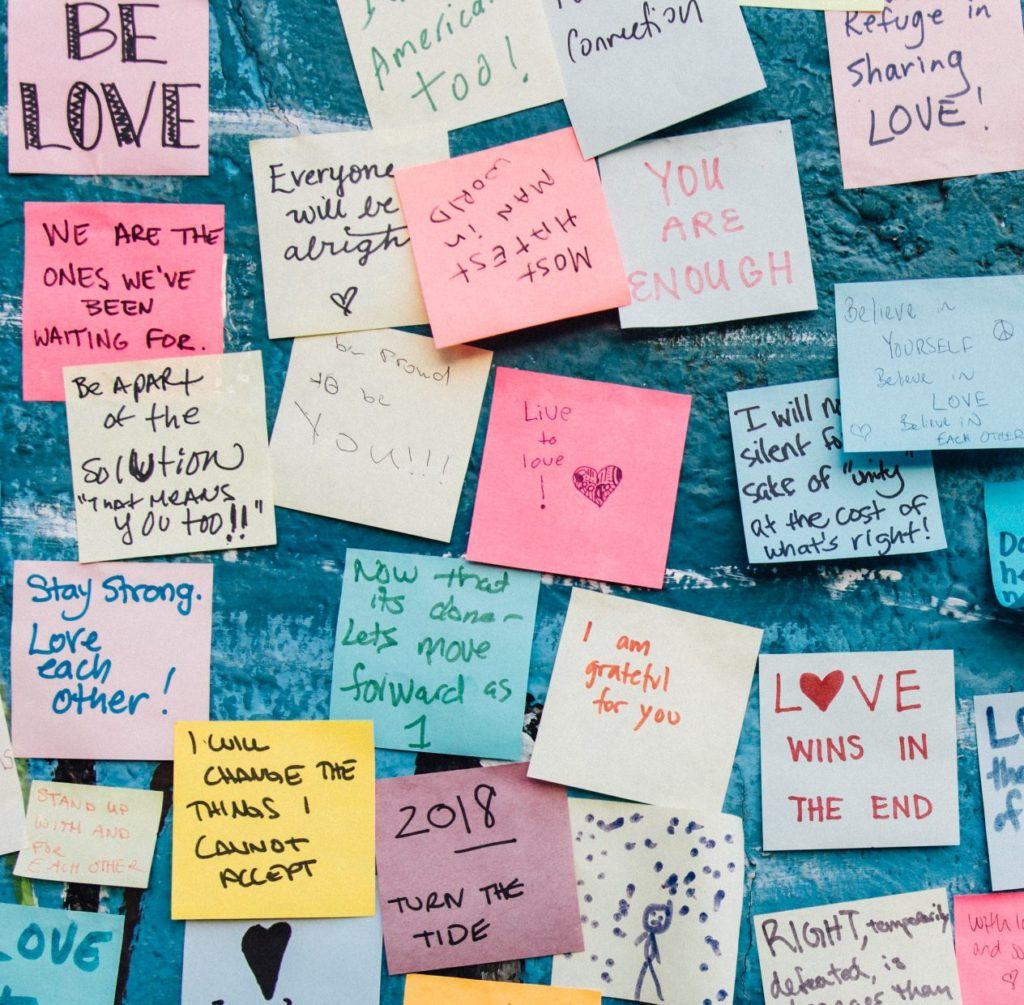 BE
LOVE
American
too!
Connection
Refuge in
Sharing
LOVE!
Everyone
will be
alright
MOST
HATEST
MAN in
WORLD
YOU
ARE
ENOUGH
WE ARE THE
ONES WE'VE
BEEN
WAITING FOR.
Believe in
YOURSELF
Believe in
LOVE
Believe IN
EACH OTHER
BE APART
of the
SOLUTION
"THAT MEANS
YOU TOO!!"
be proud
to be
YOU!!!
Live
to
love
!
I will
silent
sake of "unity"
at the cost of
what's right!
Stay Strong.
Love
each
other!
Now that
its done-
Lets move
forward as
1
I am
grateful
for you
LOVE
WINS IN
THE END
I WILL
CHANGE THE
THINGS I
CANNOT
ACCEPT
STAND UP
WITH AND
FOR
EACH OTHER
2018
TURN THE
TIDE
LOVE
RIGHT, temporarily
defeated, is
than
and